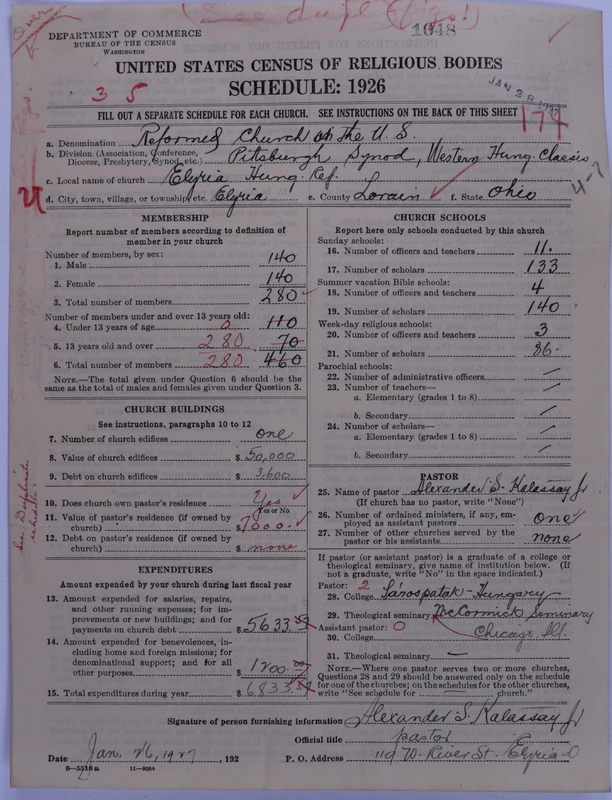 (See dupl. Ohio!)
DEPARTMENT OF COMMERCE
BUREAU OF THE CENSUS
WASHINGTON
1048
UNITED STATES CENSUS OF RELIGIOUS BODIES
SCHEDULE: 1926
JAN 28 1927
3 5
FILL OUT A SEPARATE SCHEDULE FOR EACH CHURCH. SEE INSTRUCTIONS ON THE BACK OF THIS SHEET
177
a. Denomination Reformed Church of the U.S.
b. Division (Association, Conference, Diocese, Presbytery, Synod, etc.) Pittsburgh Synod, Western Hung. Classis
c. Local name of church Elyria Hung. Ref.
d. City, town, village, or township, etc. Elyria e. County Lorain f. State Ohio
MEMBERSHIP
Report number of members according to definition of member in your church
Number of members, by sex:
1. Male 140
2. Female 140
3. Total number of members 280
Number of members under and over 13 years old:
4. Under 13 years of age 0 110
5. 13 years old and over 280 70
6. Total number of members 280 460
NOTE.—The total given under Question 6 should be the same as the total of males and females given under Question 3.
CHURCH BUILDINGS
See instructions, paragraphs 10 to 12
7. Number of church edifices one
8. Value of church edifices $ 50,000
9. Debt on church edifices $ 3,600
10. Does church own pastor's residence Yes
Yes or No
11. Value of pastor's residence (if owned by church) $ 7000.
12. Debt on pastor's residence (if owned by church) $ none
EXPENDITURES
Amount expended by your church during last fiscal year
13. Amount expended for salaries, repairs, and other running expenses; for improvements or new buildings; and for payments on church debt $ 5633.
14. Amount expended for benevolences, including home and foreign missions; for denominational support; and for all other purposes $ 1200.
15. Total expenditures during year $ 6833.
CHURCH SCHOOLS
Report here only schools conducted by this church
Sunday schools:
16. Number of officers and teachers 11.
17. Number of scholars 133
Summer vacation Bible schools:
18. Number of officers and teachers 4
19. Number of scholars 140
Week-day religious schools:
20. Number of officers and teachers 3
21. Number of scholars 36.
Parochial schools:
22. Number of administrative officers
23. Number of teachers—
a. Elementary (grades 1 to 8)
b. Secondary
24. Number of scholars—
a. Elementary (grades 1 to 8)
b. Secondary
PASTOR
25. Name of pastor Alexander S. Kalassay Jr
(If church has no pastor, write "None")
26. Number of ordained ministers, if any, employed as assistant pastors one
27. Number of other churches served by the pastor or his assistants none
If pastor (or assistant pastor) is a graduate of a college or theological seminary, give name of institution below. (If not a graduate, write "No" in the space indicated.)
Pastor: 2
28. College Sárospatak-Hungary
29. Theological seminary McCormick Seminary
Assistant pastor: 0 Chicago, Ill.
30. College
31. Theological seminary —
NOTE.—Where one pastor serves two or more churches, Questions 28 and 29 should be answered only on the schedule for one of the churches; on the schedules for the other churches, write "See schedule for ------ church."
Signature of person furnishing information Alexander S. Kalassay Jr
Official title pastor
Date Jan. 26, 1927, 192
P. O. Address 119 W. River St. Elyria O
8-5518a 11-9034